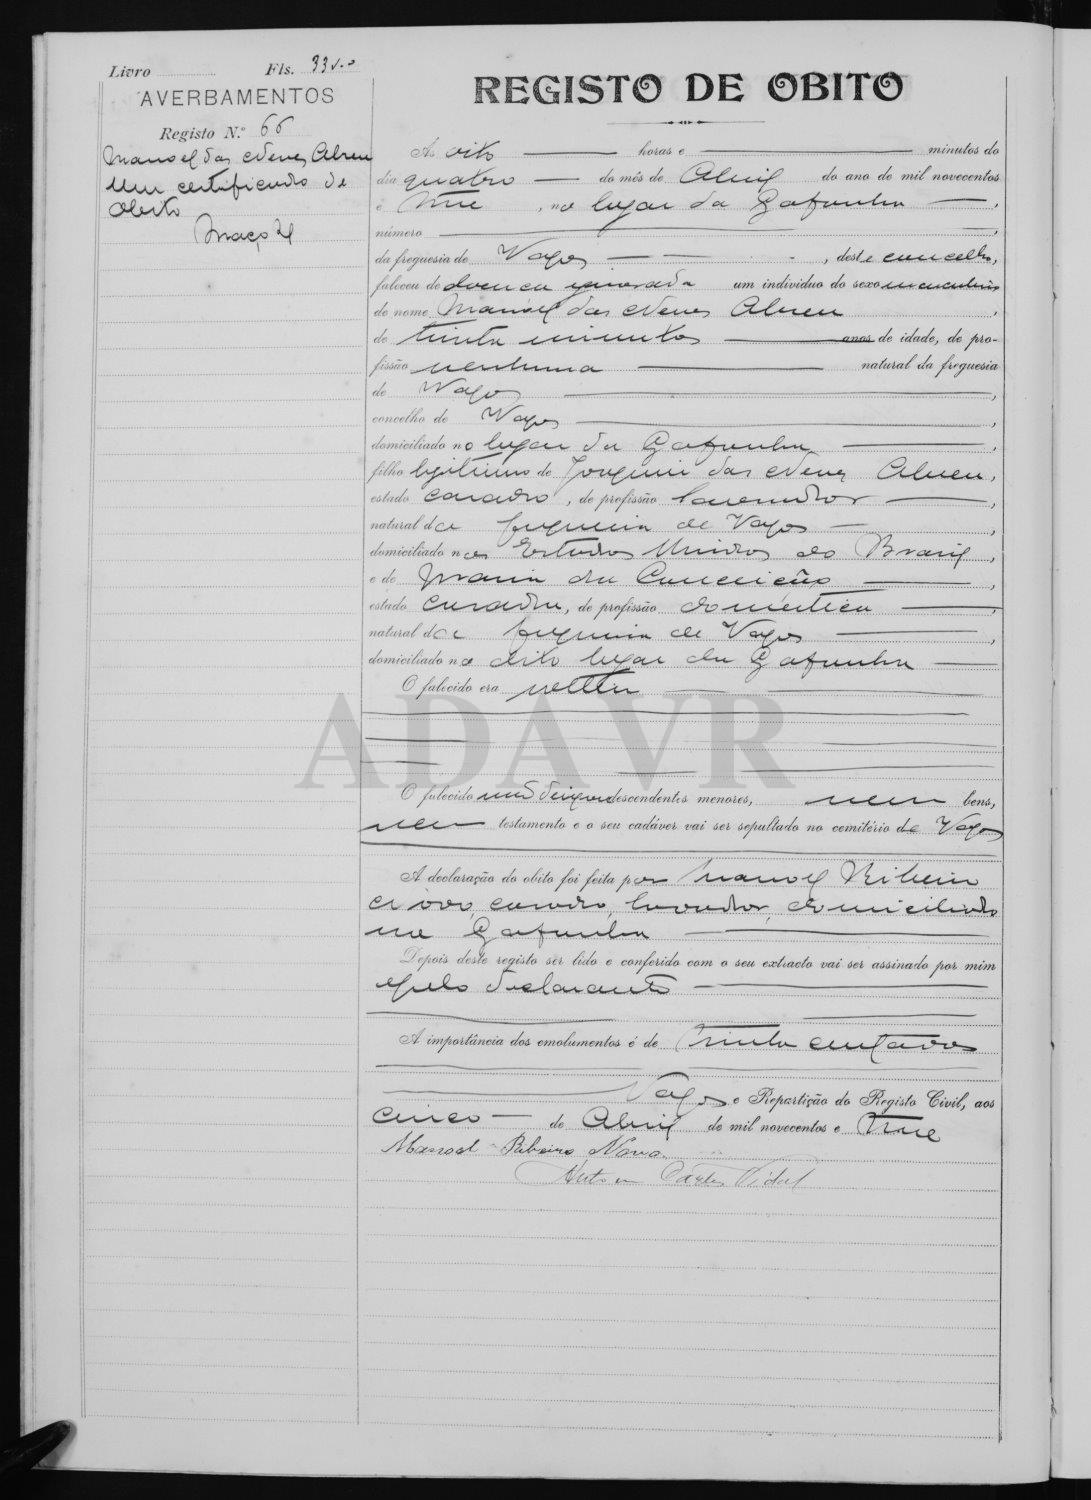 Livro Fls. 33 v.o
AVERBAMENTOS
Registo N.º 66
Manoel das Neves Abreu
Um certificado de
obito
Maço 21
REGISTO DE OBITO
Ás oito horas e minutos do
dia quatro do mês de Abril do ano de mil novecentos
e treze, no lugar da Gafanha,
número
da freguesia de Vagos, deste concelho,
faleceu de doença ignorada um individuo do sexo masculino
de nome Manoel das Neves Abreu,
de trinta minutos anos de idade, de pro-
fissão nenhuma natural da freguesia
de Vagos,
concelho de Vagos,
domiciliado no lugar da Gafanha,
filho legitimo de Joaquim das Neves Abreu,
estado casado, de profissão lavrador,
natural da freguesia de Vagos,
domiciliado nos Estados Unidos do Brasil,
e de Maria da Conceição,
estado casada, de profissão domestica,
natural da freguesia de Vagos,
domiciliada no dito lugar da Gafanha
O falecido era solteiro
ADAVR
O falecido não deixou descendentes menores, nem bens,
nem testamento e o seu cadáver vai ser sepultado no cemitério de Vagos
A declaração do obito foi feita por Manoel Ribeiro
casado, lavrador, domiciliado
na Gafanha
Depois deste registo ser lido e conferido com o seu extracto vai ser assinado por mim
e pelo declarante
A importância dos emolumentos é de trinta centavos
Vagos e Repartição do Registo Civil, aos
cinco de Abril de mil novecentos e treze
Manoel Ribeiro Novo
Vidal